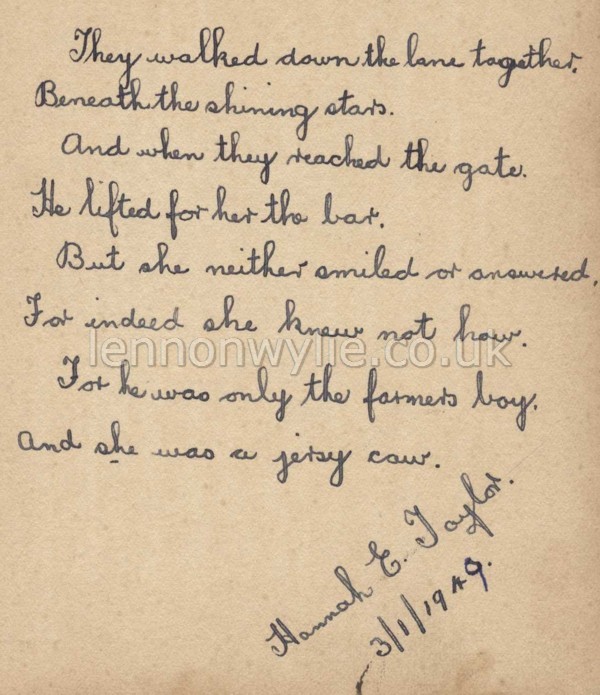 They walked down the lane together.
Beneath the shining stars.
And when they reached the gate.
He lifted for her the bar.
But she neither smiled or answered.
For indeed she knew not how.
lennonwylie.co.uk
For he was only the farmers boy.
And she was a jersy cow.
Hannah E. Taylor.
3/1/1949.